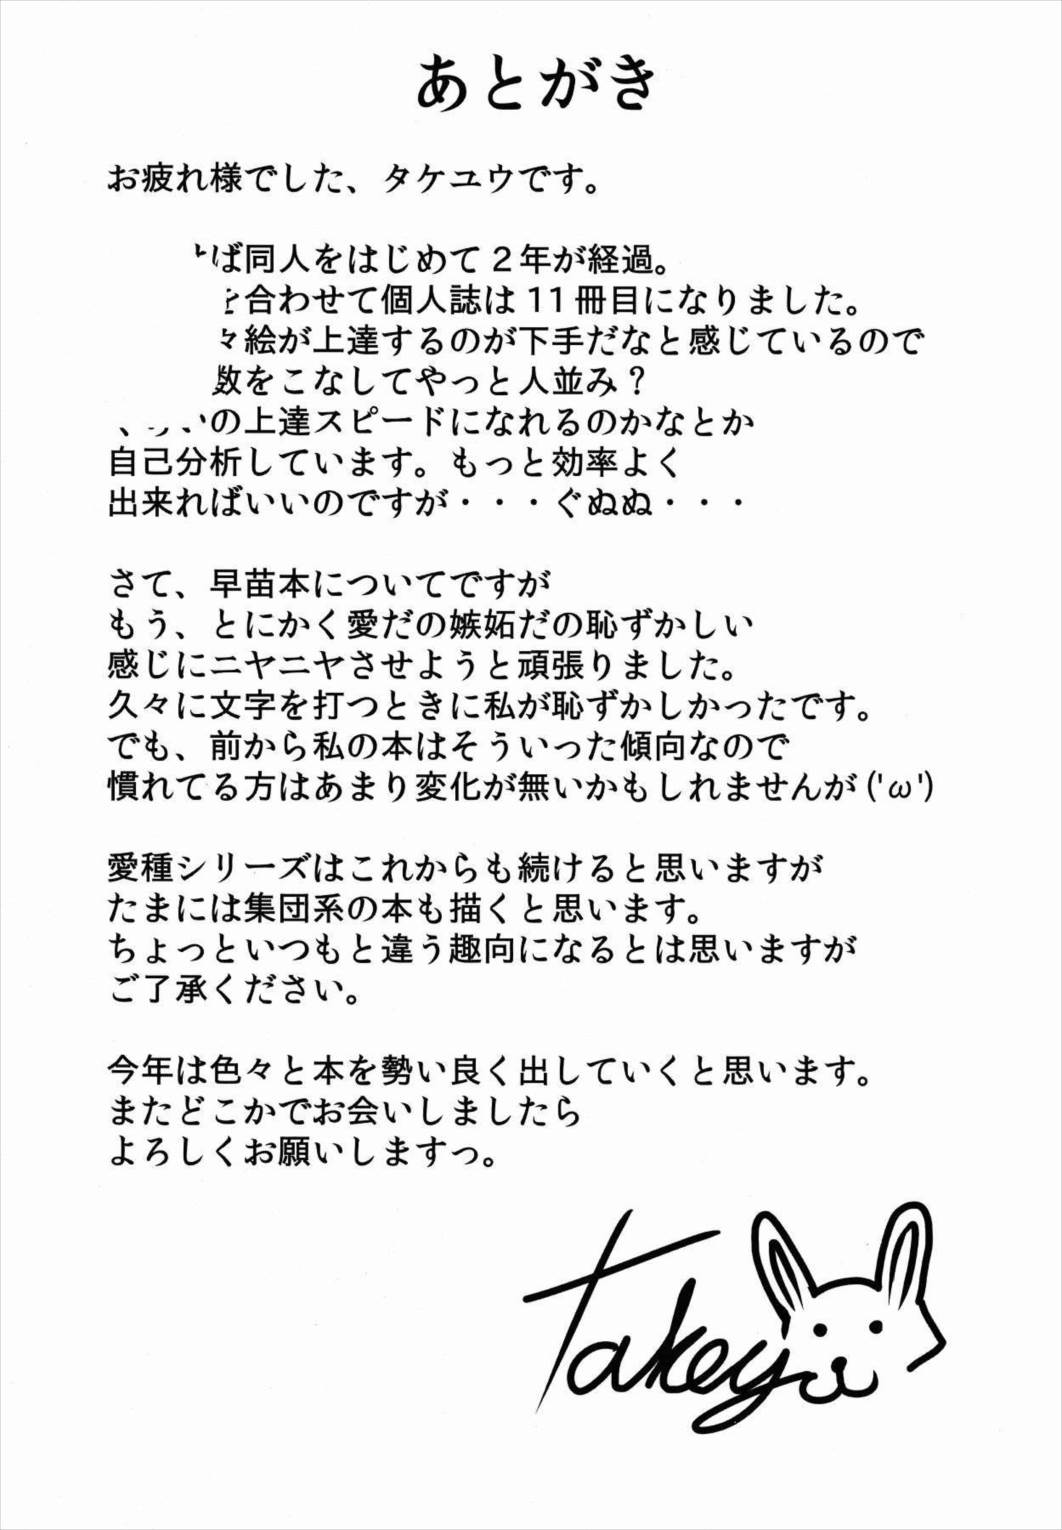 あとがき
お疲れ様でした、タケユウです。
ば同人をはじめて2年が経過。
合わせて個人誌は11冊目になりました。
々絵が上達するのが下手だなと感じているので
数をこなしてやっと人並み？
の上達スピードになれるのかなとか
自己分析しています。もっと効率よく
出来ればいいのですが・・・ぐぬぬ・・・
さて、早苗本についてですが
もう、とにかく愛だの嫉妬だの恥ずかしい
感じにニヤニヤさせようと頑張りました。
久々に文字を打つときに私が恥ずかしかったです。
でも、前から私の本はそういった傾向なので
慣れてる方はあまり変化が無いかもしれませんが('ω')
愛種シリーズはこれからも続けると思いますが
たまには集団系の本も描くと思います。
ちょっといつもと違う趣向になるとは思いますが
ご了承ください。
今年は色々と本を勢い良く出していくと思います。
またどこかでお会いしましたら
よろしくお願いしますっ。
Takeyu